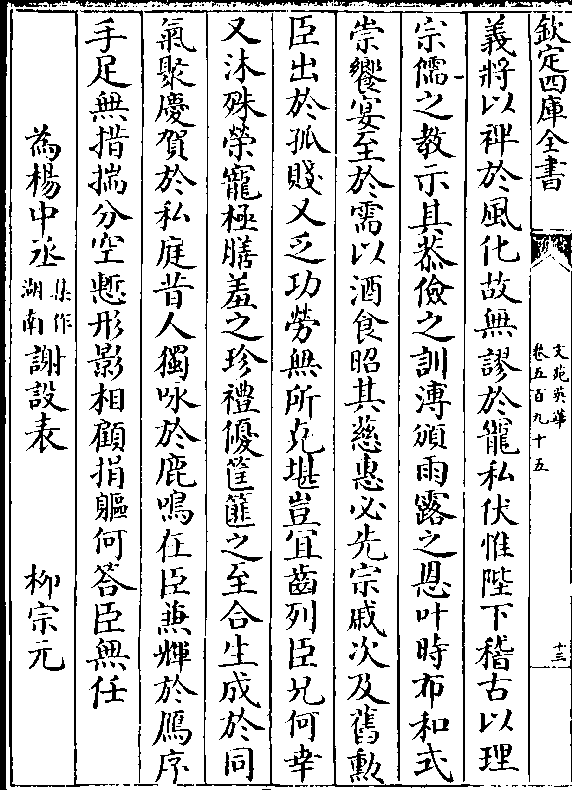 欽定四庫全書
文苑英華
卷五百九十五
十三
義將以裨於風化故無謬於寵私伏惟陛下稽古以理
宗儒之教示其恭儉之訓溥頒雨露之恩叶時布和式
崇饗宴至於需以酒食昭其慈惠必先宗戚次及舊勲
臣出於孤賤又乏功勞無所克堪豈宜齒列臣兄何幸
又沐殊榮寵極膳羞之珍禮優筐篚之至合生成於同
氣聚慶賀於私庭昔人獨咏於鹿鳴在臣兼輝於鴈序
手足無措揣分空慙形影相顧捐軀何答臣無任
為楊中丞集作湖南謝設表 柳宗元